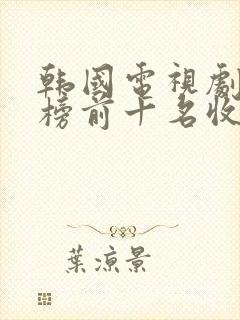 韩國電視劇
榜前十名收
葉涼景